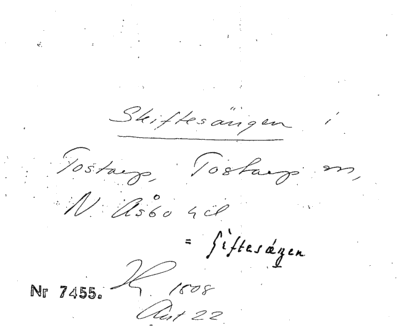 Skiftesängen i
Tostarp, Tostarp m,
N. Åsbo hd
= Giftesägen
Nr 7455. 1808
Akt 22